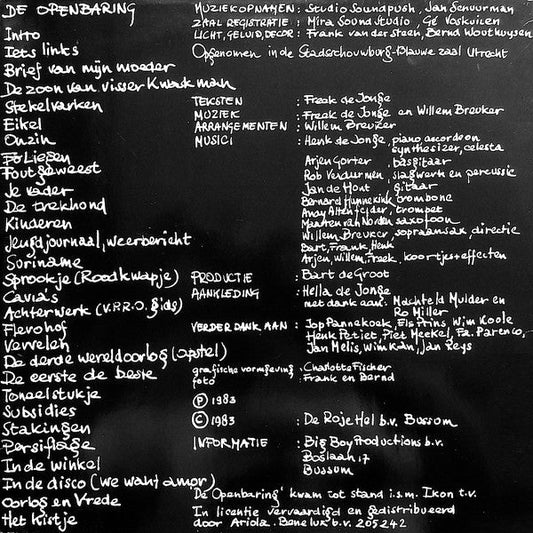 DE OPENBARING
Intro
Iets links
Brief van mijn moeder
De zoon van visser Kwakman
Stekelvarken
Eikel
Onzin
Foliesen
Fout geweest
Je vader
De trekhond
Kinderen
Jeugdjournaal, weerbericht
Suriname
Sprookje (Roodkapje)
Cavia's
Achterwerk (V.P.R.O. gids)
Flevohof
Vervelen
De derde wereldoorlog (opstel)
De eerste de beste
Toneelstukje
Subsidies
Stakingen
Persiflage
In de winkel
In de disco (we want amor)
Oorlog en Vrede
Het kistje
MUZIEKOPNAMEN : Studio Soundpush, Jan Schuurman
ZAAL REGISTRATIE : Mira Sound Studio, Gé Voskuilen
LICHT, GELUID, DECOR : Frank van der Steen, Bernd Wouthuysen
Opgenomen in de Stadsschouwburg-Blauwe zaal Utrecht
TEKSTEN : Freek de Jonge
MUZIEK : Freek de Jonge en Willem Breuker
ARRANGEMENTEN : Willem Breuker
MUSICI : Henk de Jonge, piano accordeon
synthesizer, celesta
Arjen Gorter basgitaar
Rob Verdurmen, slagwerk en percussie
Jan de Hont gitaar
Bernard Hunnekink, trombone
Andy Altenfelder, trompet
Maarten van Norden, saxofoon
Willem Breuker, sopraansax, directie
Bart, Frank, Henk
Arjen, Willem, Freek, koortjes+effecten
PRODUCTIE : Bart de Groot
AANKLEDING : Hella de Jonge
met dank aan: Machteld Mulder en
Ro Miller
VERDER DANK AAN : Jop Pannekoek, Els Prins, Wim Koole
Henk Petiet, Piet Meekel, Fa. Parenco,
Jan Melis, Wim Kan, Jan Reys
grafische vormgeving : Charlotte Fischer
foto : Frank en Bernd
Ⓟ 1983
© 1983 : De Roje Hel b.v. Bussum
INFORMATIE : Big Boy Productions b.v.
Boslaan 17
Bussum
'De Openbaring' kwam tot stand i.s.m. Ikon t.v.
In licentie vervaardigd en gedistribueerd
door Ariola-Benelux b.v. 205242